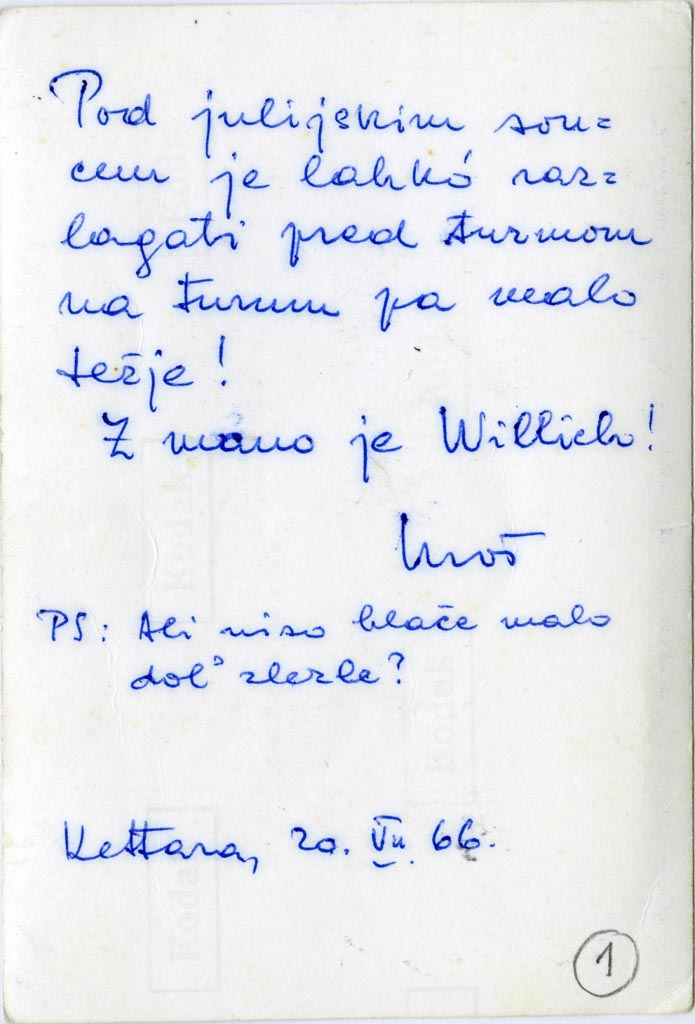 Pod julijskim son=
cem je lahkó raz=
lagati pred turmom
na turmu pa malo
težje!
Z mano je Willich!
Uroš
PS: Ali niso hlače malo
dol' zlezle?
Kettara, 20. VII. 66.
1
Kodak
Kodak
Kodak